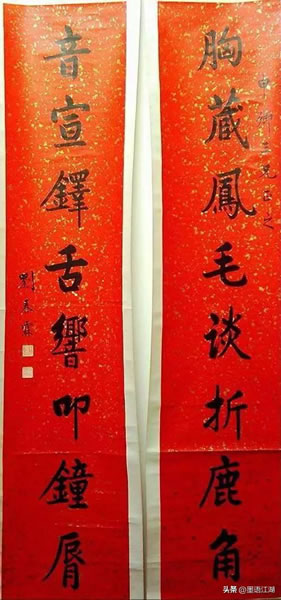 胸藏鳳毛谈折鹿角
音宣鐸舌響叩鐘脣
劉春霖
头条 @墨语江湖